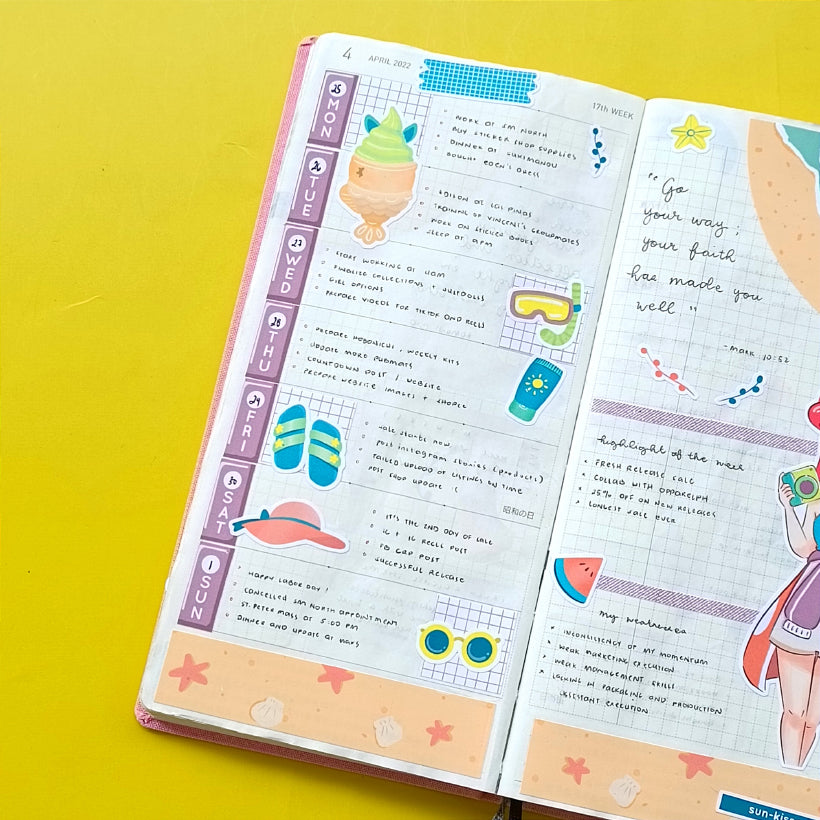 4 APRIL 2022
17th WEEK
25 MON
WORK AT SM NORTH
BUY STICKER SHOP SUPPLIES
DINNER AT
BOUGHT EDEN'S DRESS
26 TUE
EDISON AT LAS PINAS
TRAINING OF VINCENT'S GROUPMATES
WORK ON STICKER BOOKS
SLEEP AT 9PM
27 WED
START WORKING AT
FINALIZE COLLECTIONS +
GIRL OPTIONS
PREPARE VIDEOS FOR TIKTOK AND REELS
28 THU
PREPARE HOBONICHI, WEEKLY KITS
UPDATE MORE
COUNTDOWN POST / WEBSITE
PREPARE WEBSITE IMAGES + SHOPEE
29 FRI
SALE STARTS NOW
POST INSTAGRAM STORIES (PRODUCTS)
FAILED UPLOAD OF LISTINGS ON TIME
POST SHOP UPDATE :(
昭和の日
30 SAT
IT'S THE END DAY OF SALE
IG + IG REELS POST
FB GRP POST
SUCCESSFUL RELEASE
1 SUN
HAPPY LABOR DAY!
CANCELLED SM NORTH APPOINTMENT
ST. PETER MASS AT 5:00 PM
DINNER AND UPDATE AT
"Go
your way;
your faith
has made you
well"
- MARK 10:52
highlight of the week
FRESH RELEASE SALE
COLLAB WITH
25% OFF ON NEW RELEASES
LONGEST SALE EVER
my weaknesses
INCONSISTENCY OF MY MOMENTUM
WEAK MARKETING EXECUTION
WEAK MANAGEMENT SKILLS
LACKING IN PACKAGING AND PRODUCTION
ASSISTANT EXECUTION